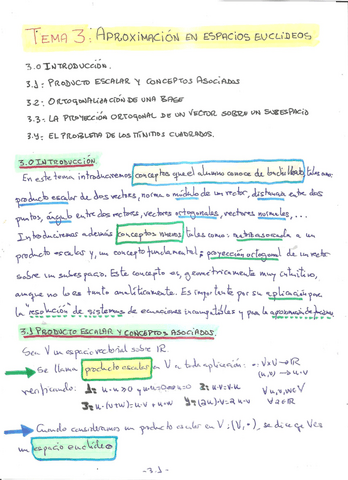 TEMA 3: APROXIMACIÓN EN ESPACIOS EUCLÍDEOS
3.0 INTRODUCCIÓN.
3.1: PRODUCTO ESCALAR Y CONCEPTOS ASOCIADOS
3.2: ORTOGONALIZACIÓN DE UNA BASE
3.3: LA PROYECCIÓN ORTOGONAL DE UN VECTOR SOBRE UN SUBESPACIO
3.4: EL PROBLEMA DE LOS MÍNIMOS CUADRADOS.
3.0 INTRODUCCIÓN.
En este tema introduciremos conceptos que el alumno conoce de bachillerato tales como:
producto escalar de dos vectores, norma o módulo de un vector, distancia entre dos
puntos, ángulo entre dos vectores, vectores ortogonales, vectores normales,...
Introduciremos además conceptos nuevos tales como: asociada a un
producto escalar y, un concepto fundamental: proyección octogonal de un vector
sobre un subespacio. Este concepto es, geométricamente muy intuitivo,
aunque no lo es tanto analíticamente. Es importante por su aplicación para
la "resolución" de sistemas de ecuaciones incompatibles y para la aproximación de
3.1 PRODUCTO ESCALAR Y CONCEPTOS ASOCIADOS.
Sea V un espacio vectorial sobre ℝ.
Se llama producto escalar en V a toda aplicación: · : V×V → ℝ
(u,v) → u·v
verificando: 1: u·u ≥ 0 y u·u=0 u=0 2: u·v=v·u ∀u,v,w∈V
3: u·(v+w)=u·v+u·w 4: (λu)·v=λu·v ∀λ∈ℝ
Cuando consideramos un producto escalar en V: (V,·), se dice que V es
un espacio euclídeo
-3.1-